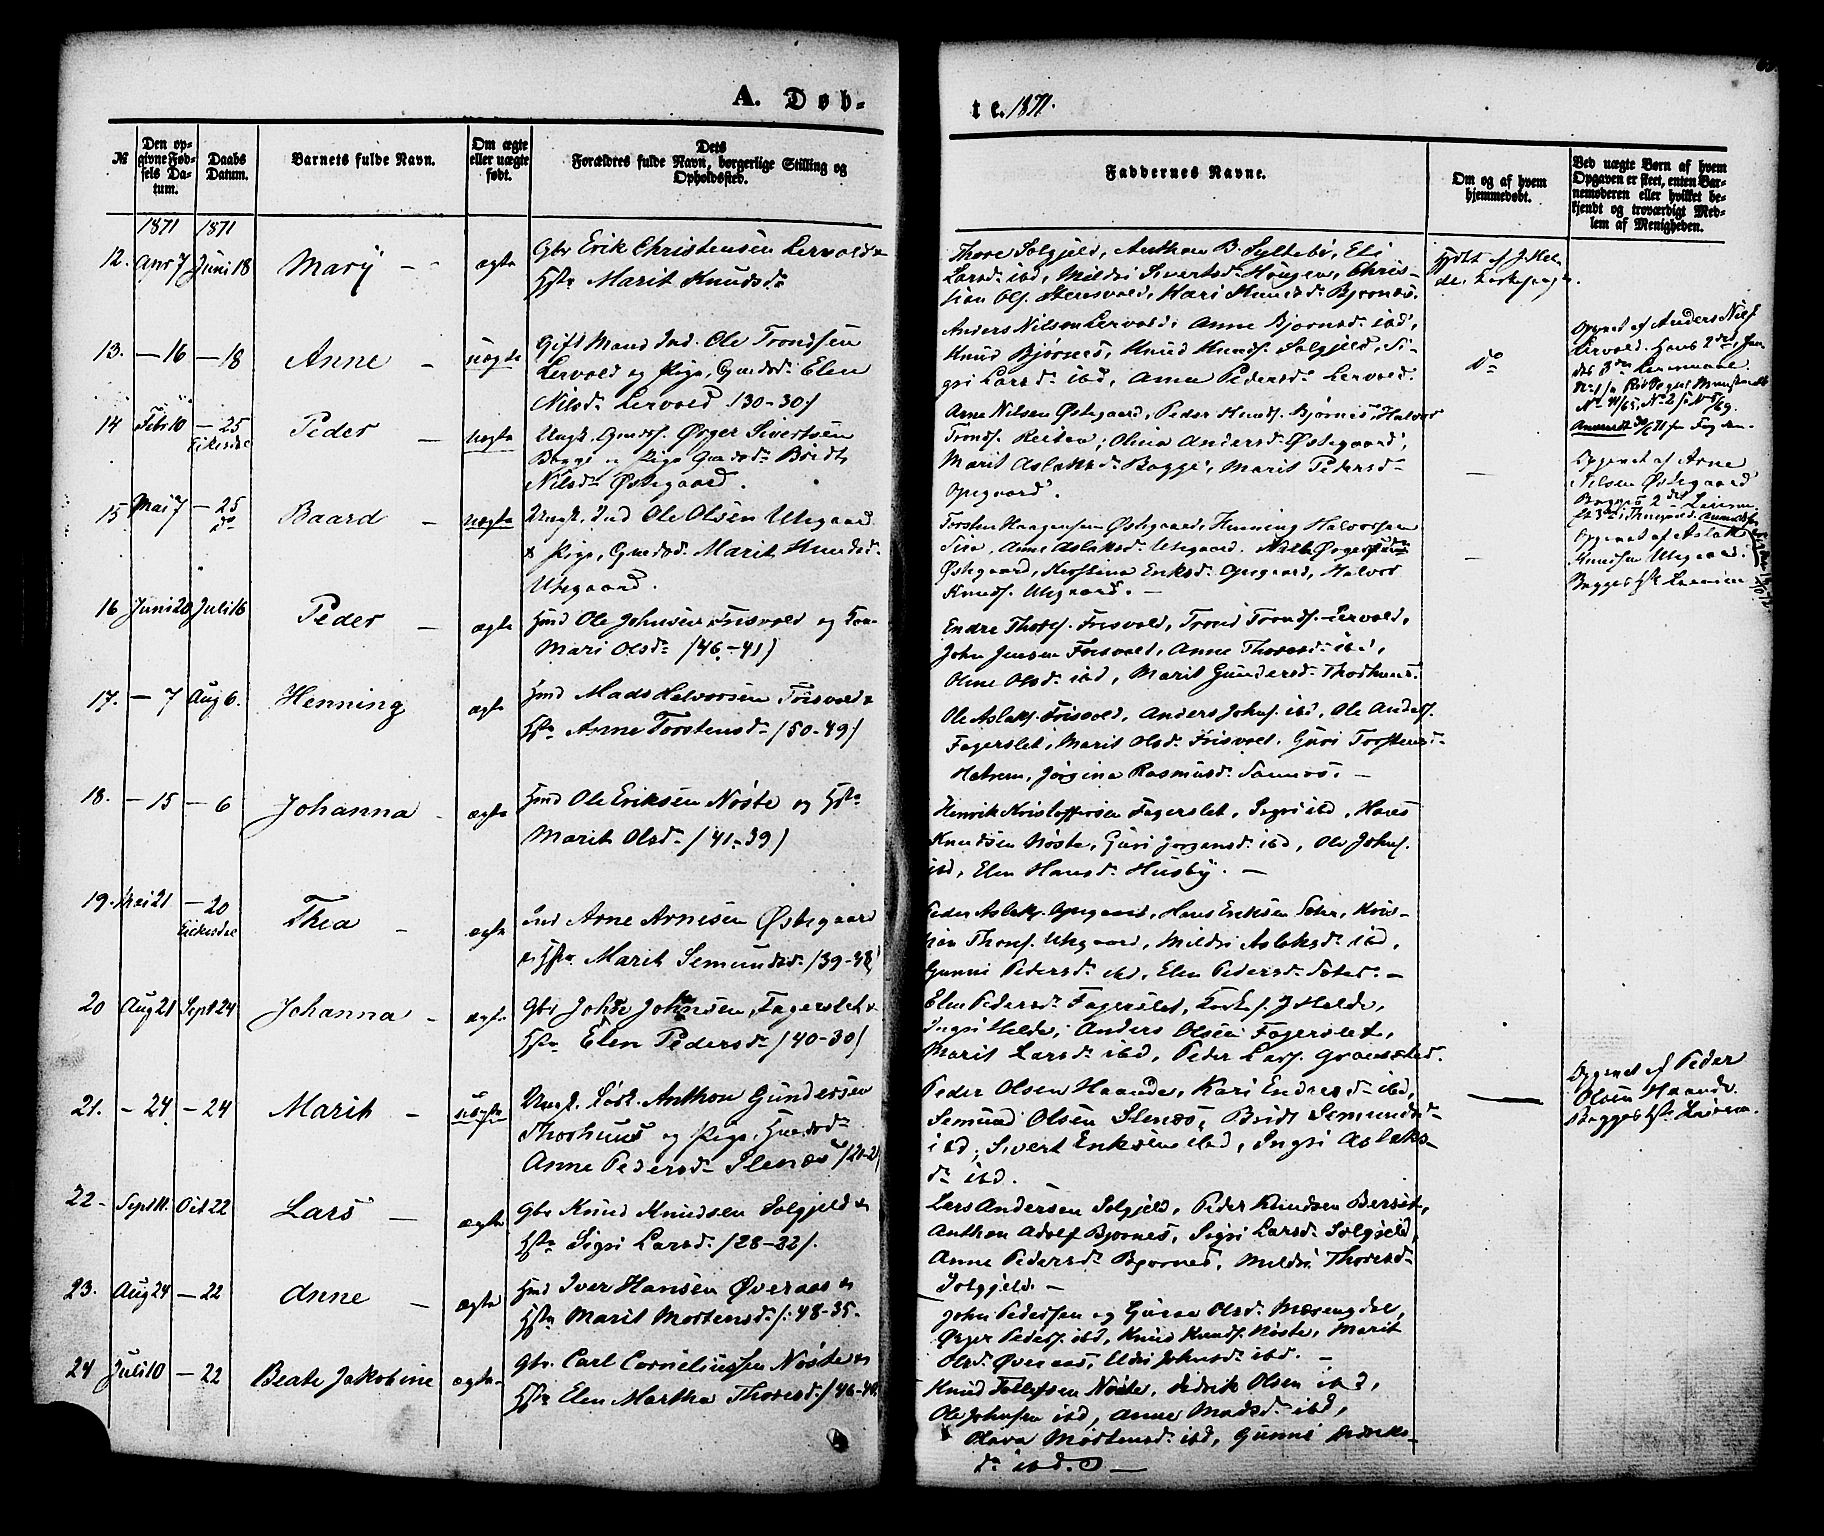 A. Døb-
te. 1871.
№
Den opgivne Fødsels Datum.
Daabs Datum.
Barnets fulde Navn.
Om ægte eller uægte født.
Dets Forældres fulde Navn, borgerlige Stilling og Opholdssted.
Faddernes Navne.
Om og af hvem hjemmedøbt.
Ved uægte Børn af hvem Opgaven er skeet, enten Barnemoderen eller hvilket bekjendt og troværdigt Medlem af Menigheden.
1871 1871
12. Apr 7 Juni 18 Mary - ægte Gbr Erik Christensen Lervold &
Hst Marit Knudsd.
Thore Solgjeld, Anthon B. Syltebø, Eli
Larsd. ibd, Mildri Sivertsd. Hougen, Chris-
tian Ols. Stensvold, Kari Knudsd. Bjørnæs.
13. - 16 - 18 Anne - uægte Gift Mand Ind. Ole Trondsen
Lervold og Pige, Gmdsd. Elen
Nilsd. Lervold (30-30)
Anders Nilsen Lervold, Anne Bjørnsd. ibd,
Knud Bjørnes, Knud Knuds. Solgjeld, Si-
gri Larsd. ibd, Anne Pedersd. Lervold.
Do
Opgivet af Anders Nils.
Lervold. Hans 2den, hen-
des 3die Leiermaal
14 Feb 10 - 25 Eikisdal Peder - uægte Ungk. Gmds. Ørger Sivertsen
Bogge og Pige Gmdsd. Bridt
Nilsd. Østegaard.
Arne Nilsen Østegaard, Peder Knuds. Bjørnes, Halvor
Tronds. Reiten, Olina Andersd. Østegaard,
Marit Aslaksd. Bogge, Marit Pedersd.
Opegaard.
-
Opgivet af Arne
Nilsen Østegaard
15 Mai 7 - 25 do Baard - uægte Ungk. Ind Ole Olsen Utegaard
& Pige, Gmdsd. Marit Knudsd.
Utegaard.
Torsten Haagensen Østegaard, Henning Halvorsen
Sira, Anne Aslaksd. Utegaard. Nils Ørgersen
Østegaard, Kerstina Eriksd. Opegaard, Halvor
Knuds. Utegaard. -
-
Opgivet af Aslak
Knudsen Utegaard.
Begges 1ste Leierm.
16 Juni 20 Juli 16 Peder - ægte Hmd Ole Johnsen Frisvold og Kone
Mari Olsd. (46-41)
Endre Thores. Frisvold, Trond Tronds. Lervold,
John Jensen Frisvold, Anne Thoresd. ibd,
Oline Olsd. ibd, Marit Gundersd. Thorhuus.
17. - 7 Aug 6. Henning ægte Hmd Mads Halvorsen Frisvold &
Hst. Anne Torstensd. (50-49)
Ole Aslaks. Frisvold, Anders Johns. ibd, Ole Anders.
Fagerslet, Marit Olsd. Frisvold, Guri Torstensd.
Hatrem, Jørgina Rasmusd. Sannes. -
18. - 15 - 6 Johanna - ægte Hmd Ole Eriksen Nøste og Hst
Marit Olsd. (41-39)
Henrik Kristoffersen Fagerslet, Ingri ibd, Hans
Knudsen Nøste, Guri Jørgensd. ibd, Ole Johns.
ibd, Elen Hansd. Husby. -
19. Mai 21 - 20 Eikisdal Thea - ægte Ind Arne Arnesen Østegaard
& Hst. Marit Semundsd. (39-42)
Peder Aslaks. Opegaard, Hans Eriksen Sæter, Kris-
tian Thores. Utegaard, Mildri Aslaksd. ibd,
Gunni Pedersd. ibd, Elen Pedersd. Sæter. -
20 Aug 21 Sept 24 Johanna - ægte Gbr John Johnsen, Fagerslet &
Hst. Elen Pedersd. (40-30)
Elen Pedersd. Fagerslet, Kirks. J. Helde,
Ingri Helde, Anders Olsen Fagerslet,
Marit Larsd. ibd, Peder Lars.
21. - 24 - 24 Marit - uægte Ungk. Anthon Gundersen
Thorhuus og Pige, Hmdsd.
Anne Pedersd. Slenæs
Peder Olsen Haande, Kari Endresd. ibd,
Semund Olsen Slenæs, Bridt Semundsd.
ibd, Sivert Eriksen ibd, Ingri Aslaks-
d. ibd.
-
Opgivet af Peder
Olsen Haande.
Begges 1ste Leierm.
22 - Sept 11. Oct 22 Lars - ægte Gbr Knud Knudsen Solgjeld &
Hst. Sigri Larsd. (28-22).
Lars Andersen Solgjeld, Peder Knudsen Bersøt,
Anthon Adolf Bjørnes, Sigri Larsd. Solgjeld,
Anne Pedersd. Bjørnes, Mildri Thoresd.
Solgjeld. -
23. Aug 24 - 22 Anne - ægte Hmd Iver Hansen Øveraas &
Hst. Marit Mortensd. (48-35.
John Pedersen og Guraa Olsd. Mærengdal,
Ørger Peders. ibd, Knud Knuds. Nøste, Marit
Olsd. Øveraas, Udri Johnsd. ibd. -
24 Juli 10 - 22 Beate Jakobine ægte - Gbr. Carl Corneliussen Nøste &
Hst Elen Martha Thoresd. (46-40)
Knud Tollefsen Nøste, Didrik Olsen ibd,
Ole Johnsen ibd, Anne Madsd. ibd,
Olava Mortensd. ibd, Gunni Didriks-
d. ibd. -